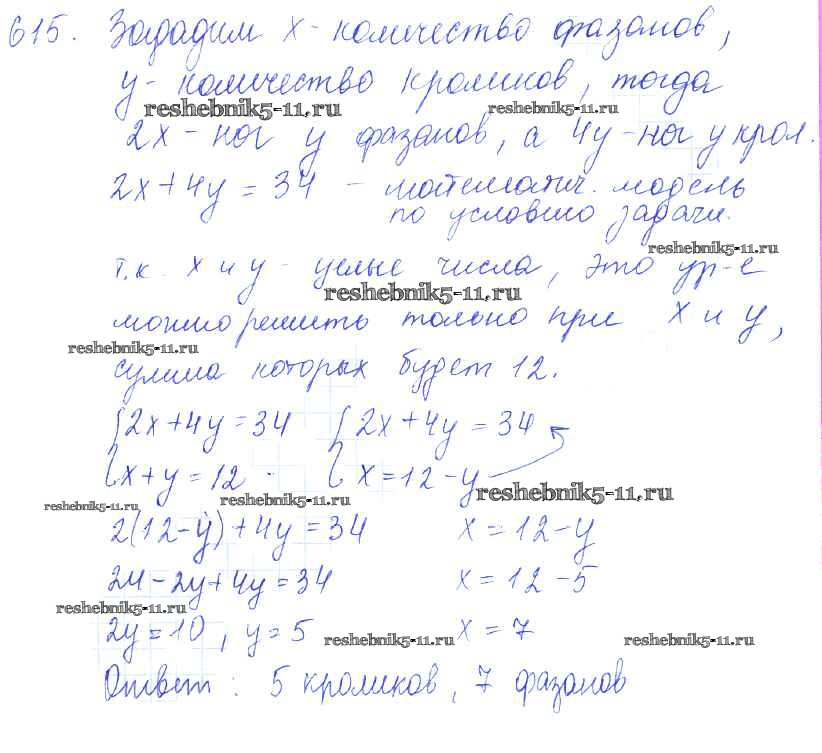 615. Зададим x - количество фазанов,
y - количество кроликов, тогда
reshebnik5-11.ru reshebnik5-11.ru
2x - ног у фазанов, а 4y - ног у крол.
2x + 4y = 34 - математич. модель
по условию задачи.
reshebnik5-11.ru
т.к. x и y - целые числа, это ур-е
reshebnik5-11.ru
можно решить только при x и y,
reshebnik5-11.ru
сумма которых будет 12.
{2x + 4y = 34 {2x + 4y = 34
{x + y = 12 . {x = 12 - y
reshebnik5-11.ru reshebnik5-11.ru reshebnik5-11.ru
2(12 - y) + 4y = 34 x = 12 - y
24 - 2y + 4y = 34 x = 12 - 5
reshebnik5-11.ru
2y = 10, y = 5 x = 7
reshebnik5-11.ru reshebnik5-11.ru
Ответ: 5 кроликов, 7 фазанов